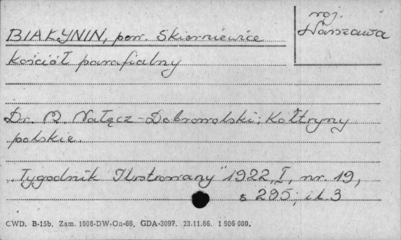 woj.
Warszawa
BIAŁYNIN, pow. Skierniewice
Kościół parafialny
Dr. M. Nałęcz-Dobrowolski: Kołtryny
polskie.
„Tygodnik Ilustrowany" 1922, I, nr. 19,
s 295; il. 3
CWD. B-15b. Zam. 1906-DW-On-66, GDA-3097. 23.11.66. 1 906 000.